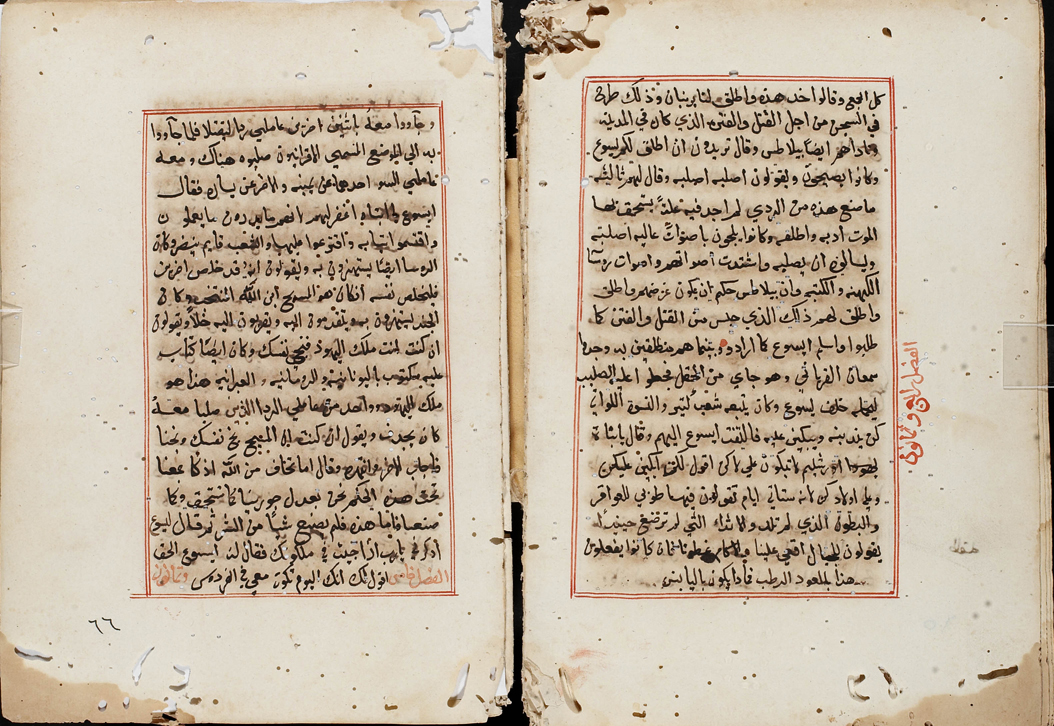 كل الجمع وقالوا خد هذه واطلق لنا برنبان وذلك طرح
في السجن من اجل القتل والفتن الذي كان في المدينة
فناداهم ايضا بيلاطس وقال تريدون ان اطلق لكم يسوع
وكانوا يصيحون ويقولون اصلبه اصلبه وقال لهم ثالثه
ما صنع هذه من الردي لم اجد فيه علة يستحق بها
الموت ادبه واطلقه وكانوا يلجون باصوات عاليه اصلبه
ويسالون ان يصلبه واشتدت اصواتهم واصوات روسا
الكهنه والكتبه وان بيلاطس حكم ان يكون غرضهم واطلق
واطلق لهم ذالك الذي حبس من القتل والفتن كما
طلبوا واسلم ايسوع كما ارادو وبينما هم منطلقين به وجدوا
سمعان القرياني وهو جاي من الحقل فحطوا عليه الصليب
ليحمله خلف يسوع وكان يتبعه شعب كثير والنسوة اللواتي
كن يندبنه ويبكين عليه فالتفت ايسوع اليهم وقال يابنات
اورشليم لا تبكون علي لاكن اقول لكن ابكين عليكن
وعلى اولادكن لانه ستاتي ايام تقولون فيها طوبى للعواقر
والبطون الذي لم تلد والاثداء التي لم ترضع حينئذ
يقولون للجبال اقعي علينا وللاكام غطونا لان كانوا يفعلون
هذا بالعود الرطب فماذا يكون باليابس
الفصل وثمانون
وجاووا معه باثنين اخرين عاملي ردا ليقتلا فلما جاووا
به الي الموضع المسمي الاقرانيون صلبوه هناك ومعه
عاملي السو احدهما عن يمينه والاخر عن يساره فقال
ايسوع يا ابتاه اغفر لهم لانهم ما يدرون ما يعملون
واقتسموا ثيابه واقترعوا عليها والشعب قايم ينظر وكان
الروسا ايضا يستهزون به ويقولون انه قد خلص اخرين
فليخلص نفسه ان كان هو المسيح ابن الله المنتخب وكان
الجند يستهزون به ويتقدمون اليه ويقربون اليه خلا ويقولون
ان كنت انت ملك اليهود فنجي نفسك وكان ايضا كتاب
عليه مكتوب باليونانيه والرومانيه والعبرانيه هذا هو
ملك اليهود وواحد من عاملي الردا الذين صلبا معه
كان يجدف ويقول ان كنت انت المسيح نج نفسك ونجنا
فاجاب الاخر وانتهره وقال اما تخاف من الله اذ كلنا
نحن بعدل جوزينا كما نستحق وكما
صنعنا فاما هذه فلم يصنع شيا من الشر ثم قال ليسوع
اذكرني يارب اذا جيت في ملكوتك فقال له ايسوع الحق
اقول لك انك اليوم تكون معي في الفردوس الفصل وثمانون
٦٦